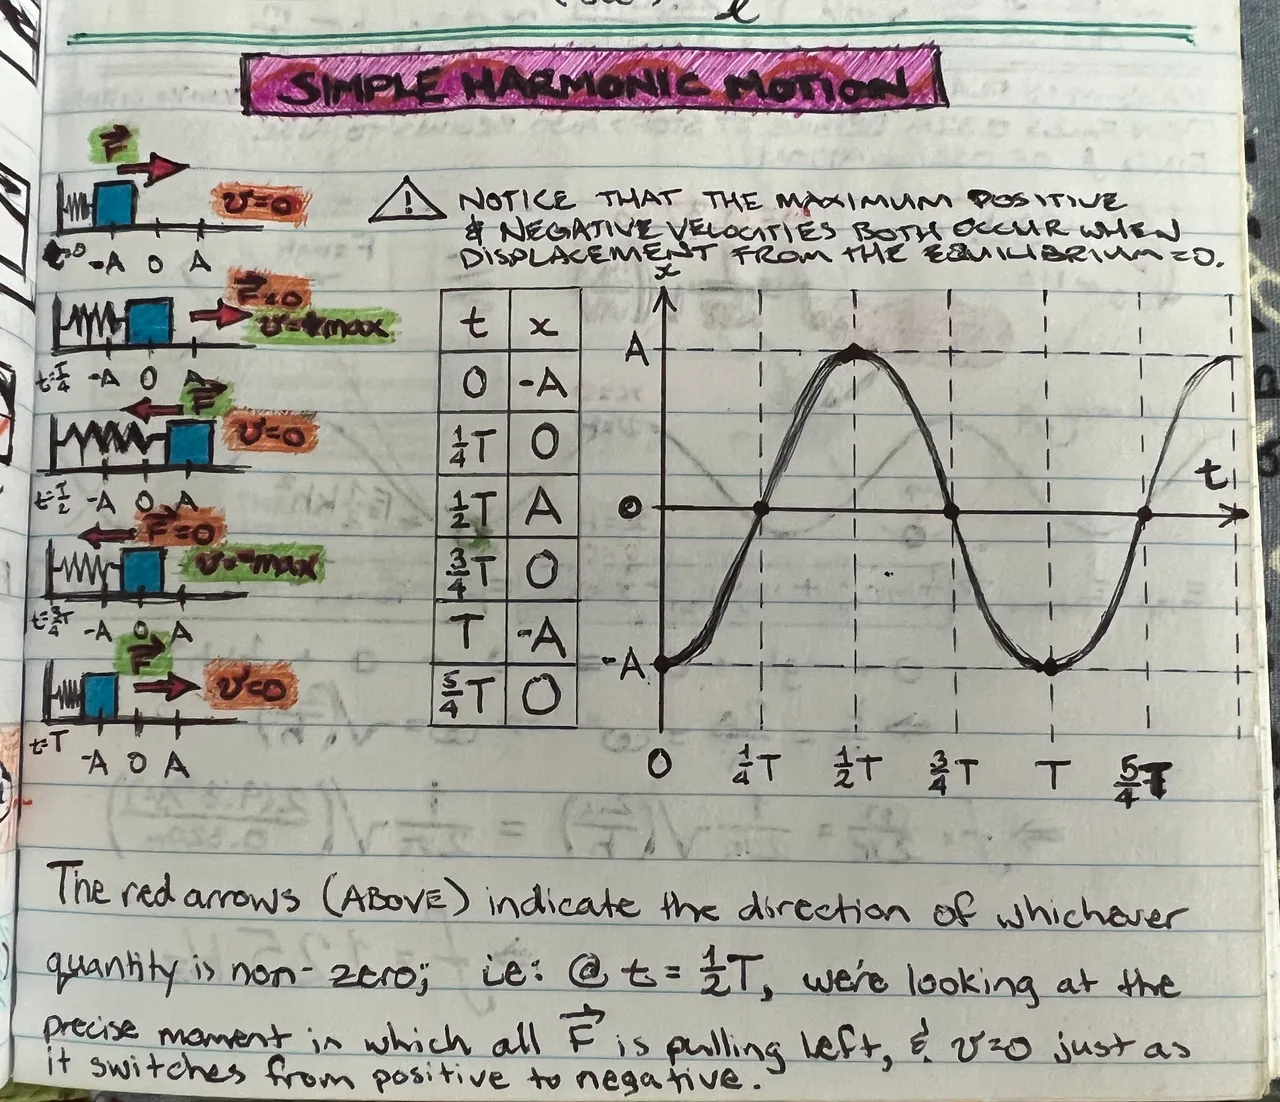 SIMPLE HARMONIC MOTION
F
v=0
t=0 -A 0 A
F=0
v=+max
t=T/4 -A 0 A
F
v=0
t=T/2 -A 0 A
F=0
v=-max
t=3/4T -A 0 A
F
v=0
t=T
-A 0 A
⚠ NOTICE THAT THE MAXIMUM POSITIVE
& NEGATIVE VELOCITIES BOTH OCCUR WHEN
DISPLACEMENT FROM THE EQUILIBRIUM=0.
t x
0 -A
1/4T 0
1/2T A
3/4T 0
T -A
5/4T 0
x
A
0
-A
t
0 1/4T 1/2T 3/4T T 5/4T
The red arrows (ABOVE) indicate the direction of whichever
quantity is non-zero; ie: @ t = 1/2T, we're looking at the
precise moment in which all F is pulling left, & v=0 just as
it switches from positive to negative.